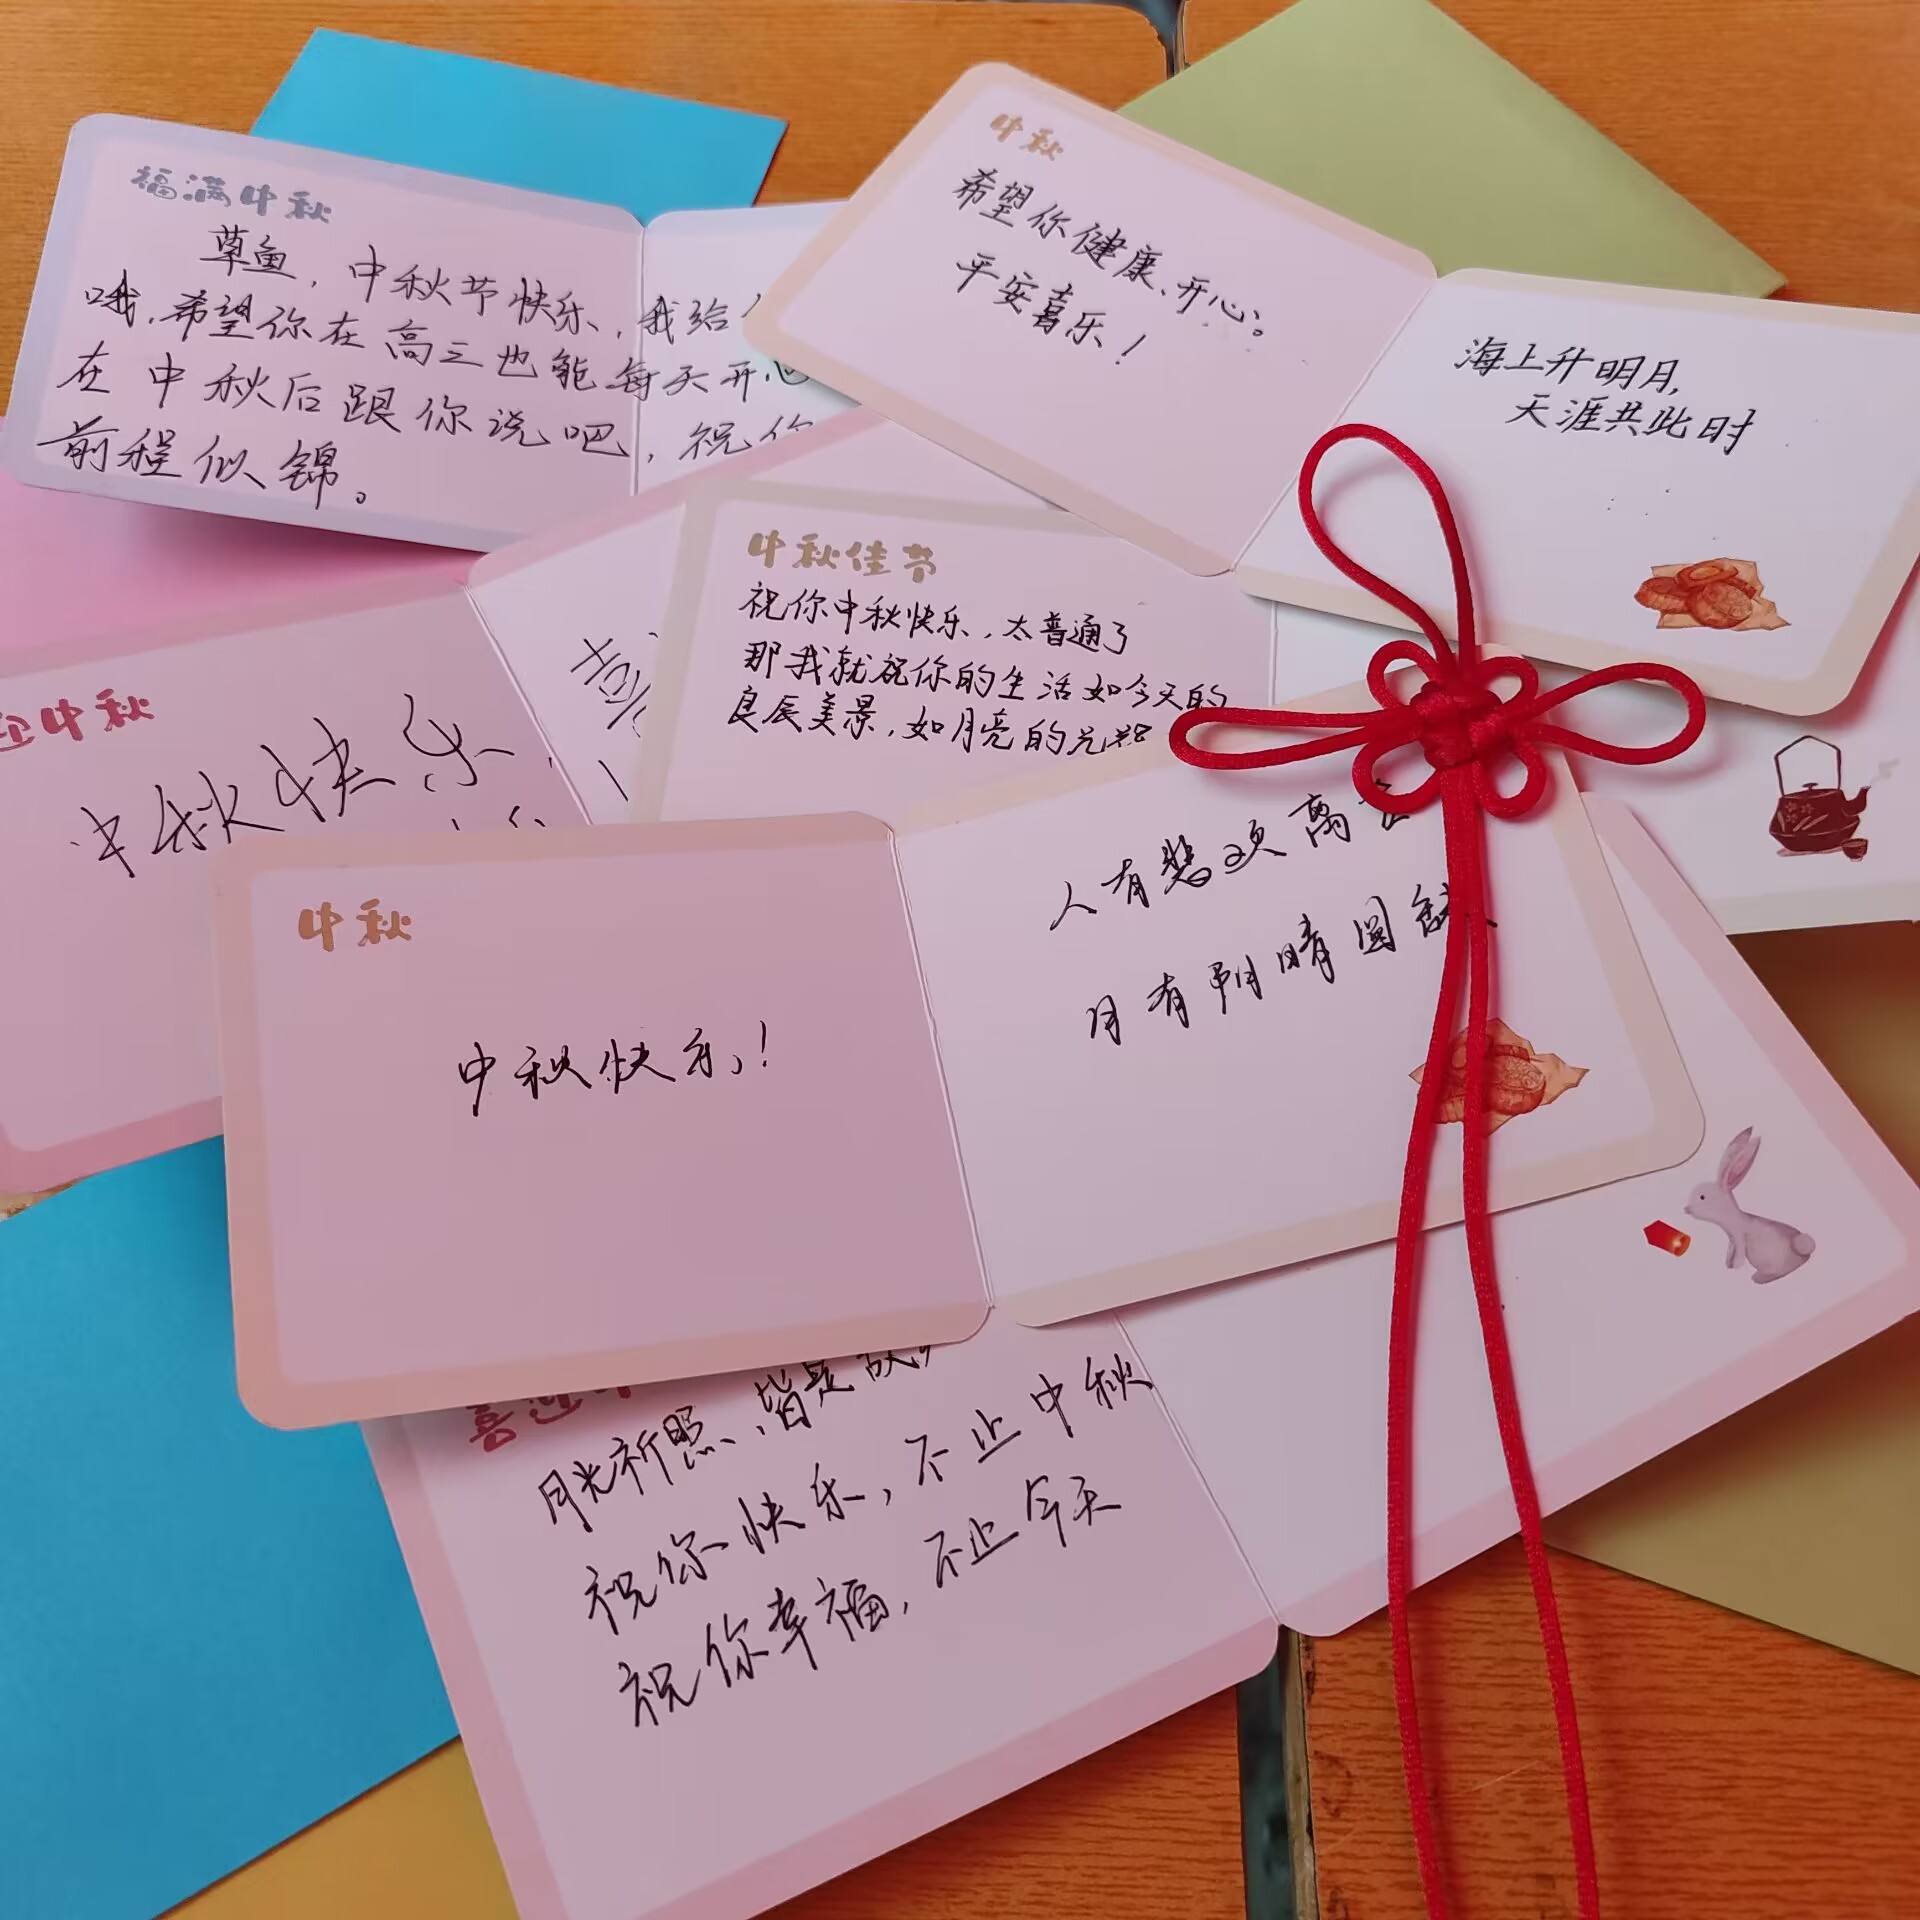 福满中秋
草鱼，中秋节快乐，我给
哦，希望你在高三也能每天开心
在中秋后跟你说吧，祝你
前程似锦。
中秋
希望你健康、开心。
平安喜乐！
海上升明月，
天涯共此时
中秋佳节
祝你中秋快乐，太普通了
那我就祝你的生活如今天的
良辰美景，如月亮的光
迎中秋
中秋快乐，
喜
中秋
中秋快乐！
人有悲欢离
月有阴晴圆缺
喜迎中
月光所照、皆是故
祝你快乐，不止中秋
祝你幸福，不止今天